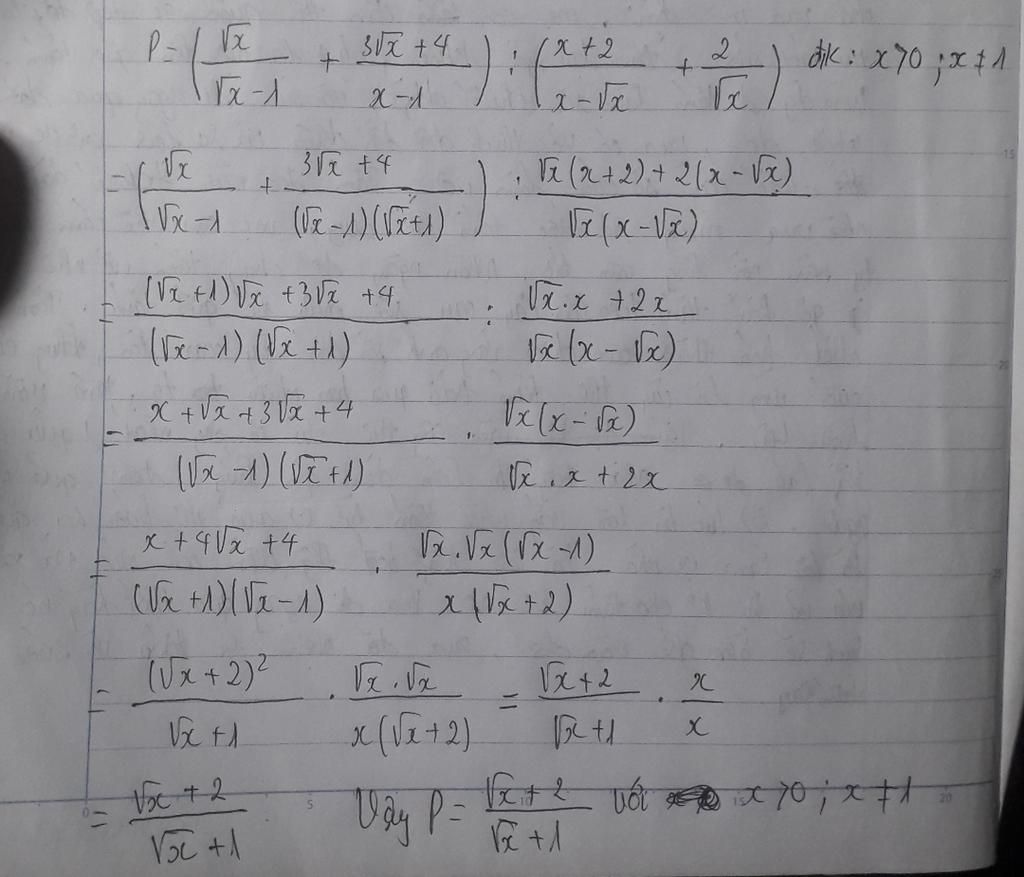 P = (√x/(√x-1) + (3√x+4)/(x-1)) : ((x+2)/(x-√x) + 2/√x) đk: x>0; x≠1
= (√x/(√x-1) + (3√x+4)/((√x-1)(√x+1))) : (√x(x+2)+2(x-√x))/(√x(x-√x))
= ((√x+1)√x+3√x+4)/((√x-1)(√x+1)) : (√x.x+2x)/(√x(x-√x))
= (x+√x+3√x+4)/((√x-1)(√x+1)) . (√x(x-√x))/(√x.x+2x)
= (x+4√x+4)/((√x+1)(√x-1)) . (√x.√x(√x-1))/(x(√x+2))
= (√x+2)²/(√x+1) . (√x.√x)/(x(√x+2)) = (√x+2)/(√x+1) . x/x
= (√x+2)/(√x+1) Vậy P = (√x+2)/(√x+1) với x>0; x≠1